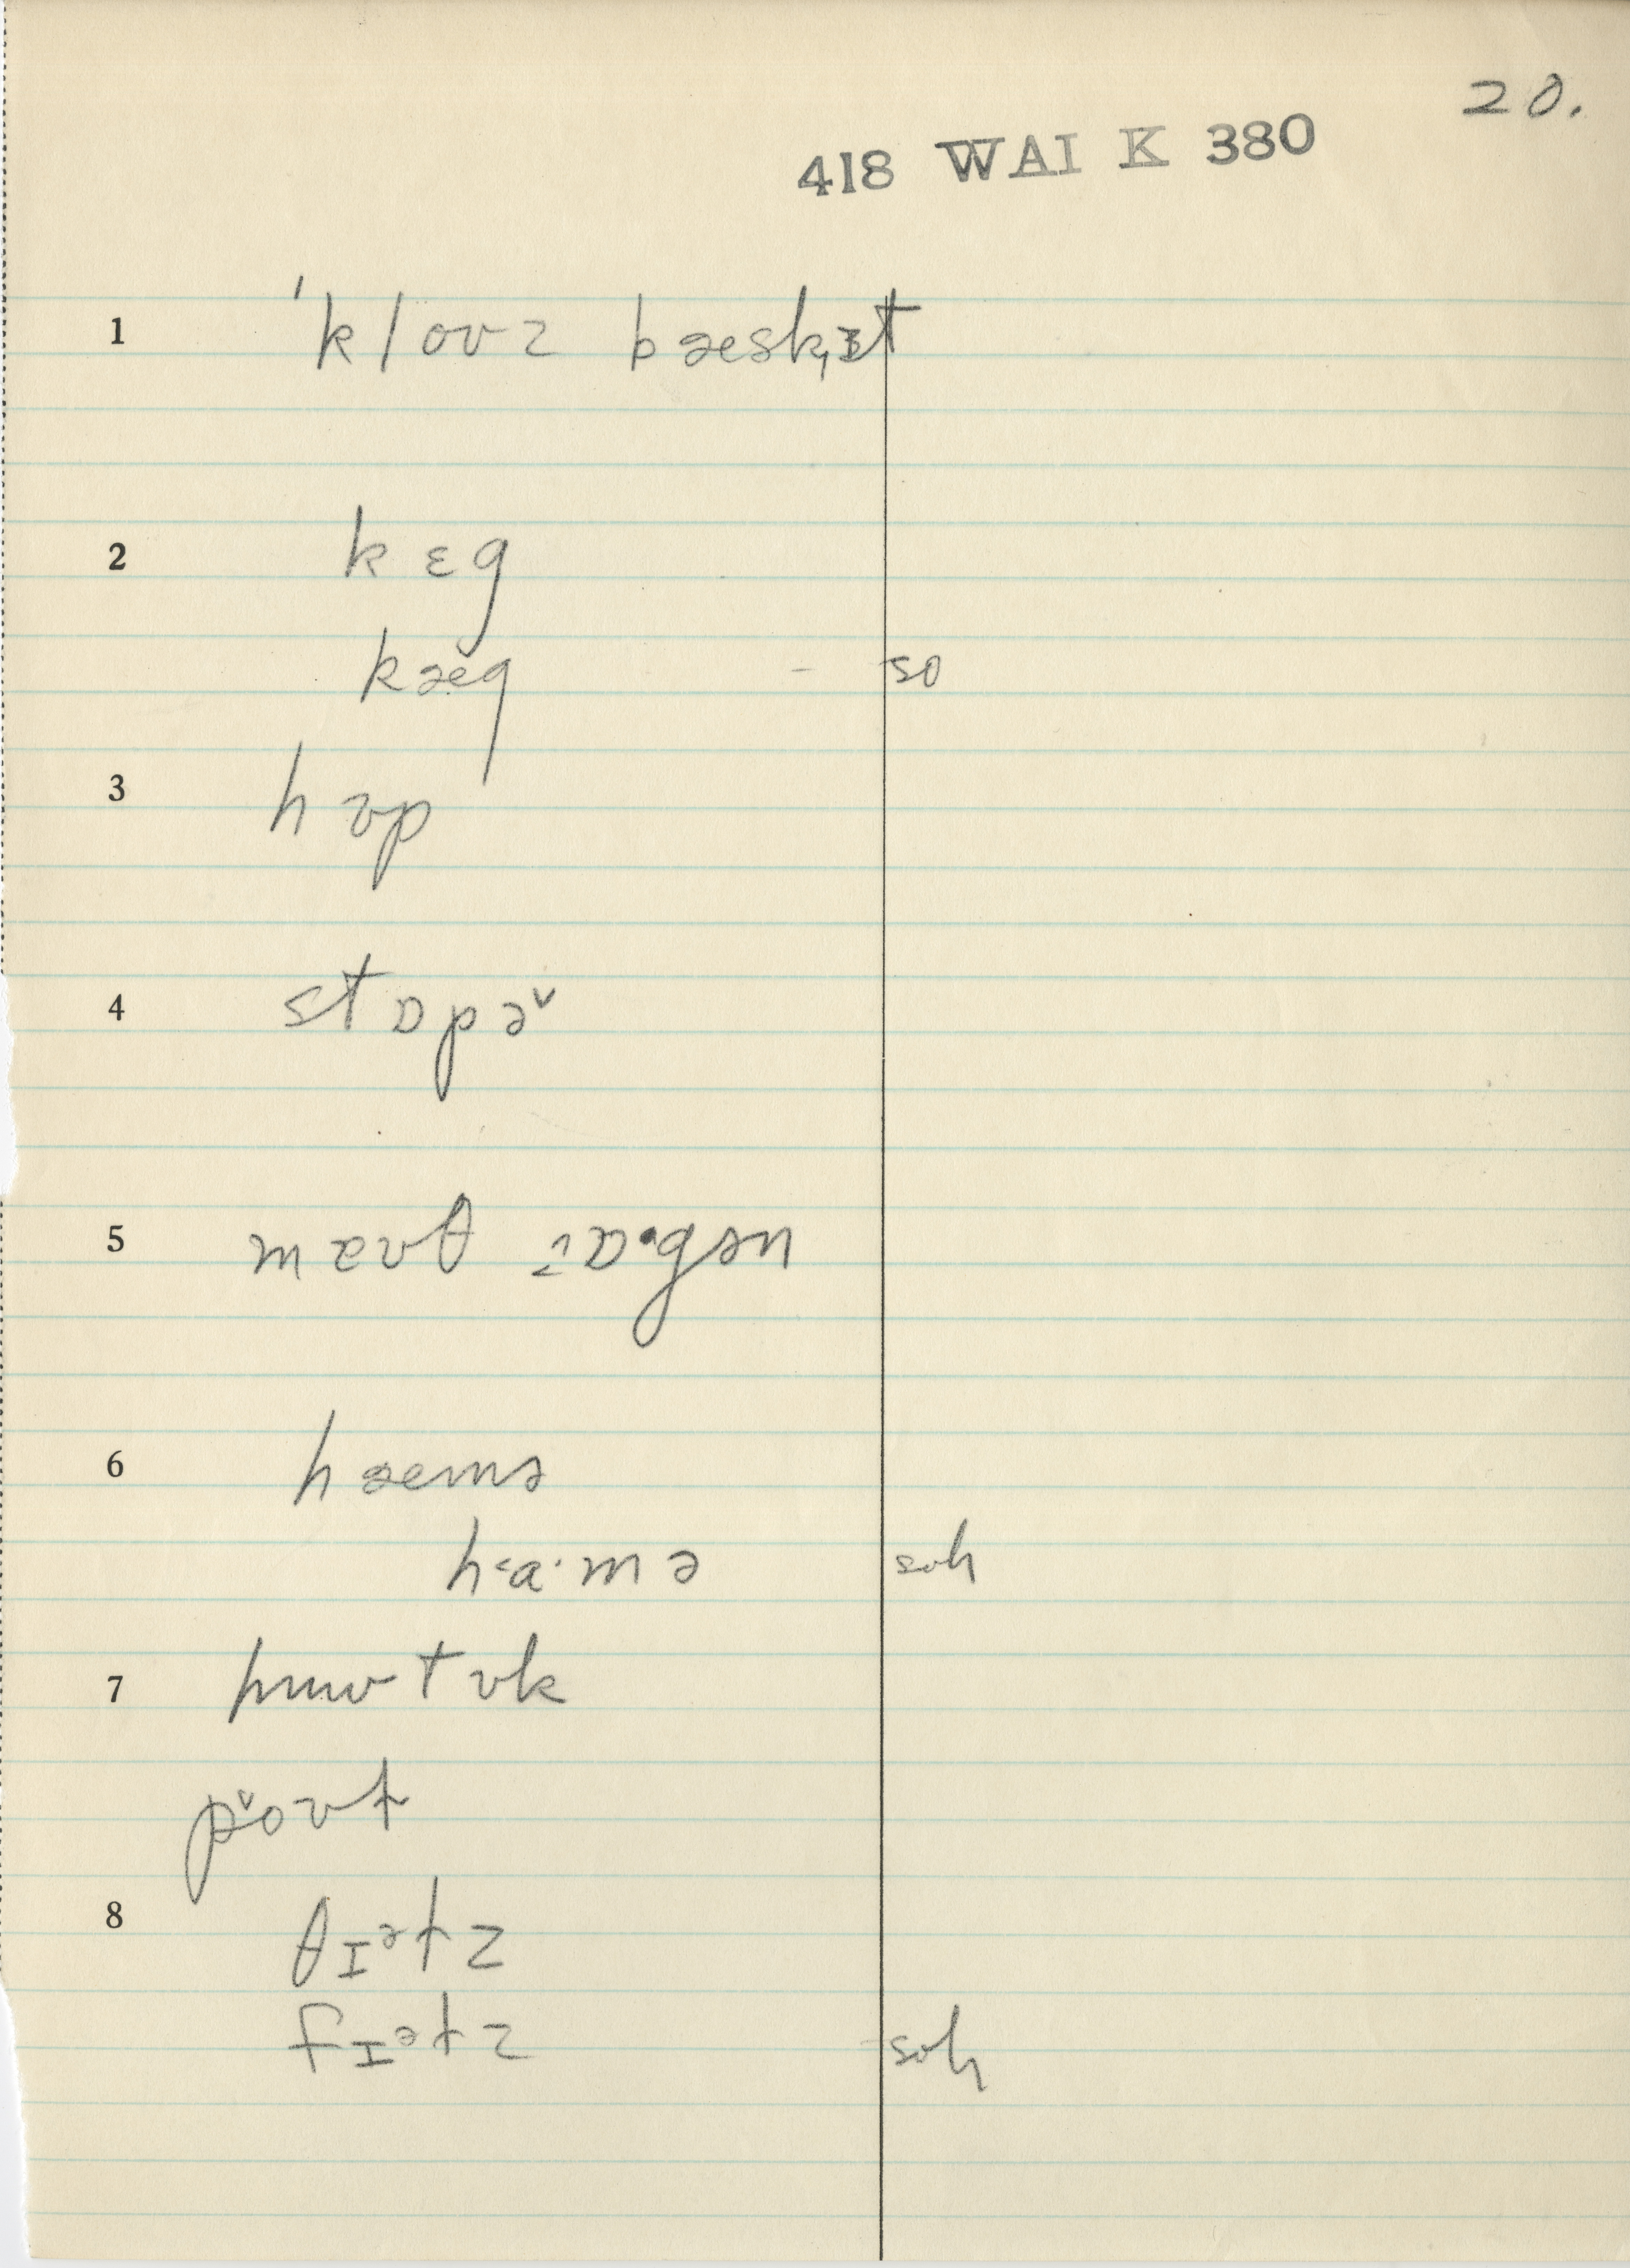 20.
418 WAI K 380
1 ˈkloʊz bæskˌɪt
2 kɛg
kæ̆g – so
3 hʊp
4 stɒpə˅
5 maʊθ ɒˑgən
6 hæmə
h<aˑmə soh
7 t ʊk
p˅oʊt
8 θɪətz
fɪətz – soh